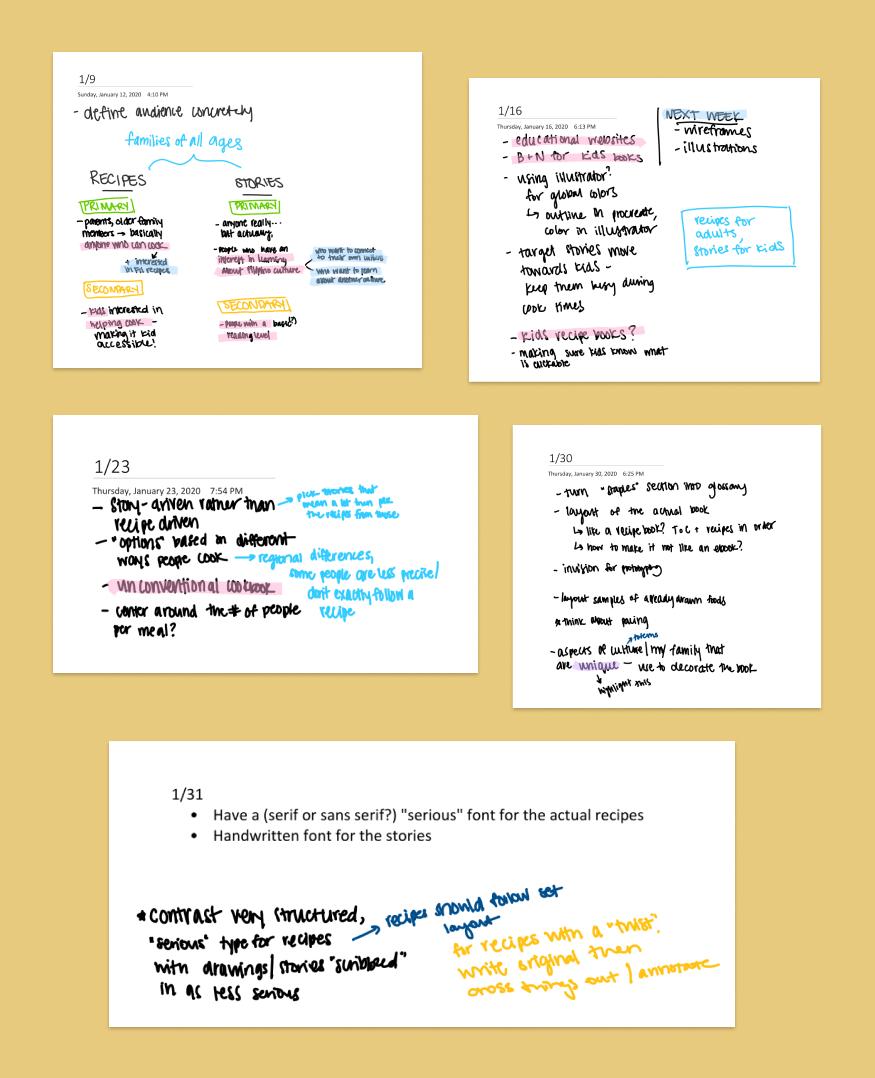 1/9
Sunday, January 12, 2020 4:10 PM
- define audience concretely
families of all ages
RECIPES
PRIMARY
- parents, older family
members → basically
anyone who can cook
+ interested
in Fil recipes
SECONDARY
- kids interested in
helping cook -
making it kid
accessible!
STORIES
PRIMARY
- anyone really...
but actually,
- people who have an
interest in learning
about filipino culture
who want to connect
to their own culture
who want to learn
about another culture
SECONDARY
- people with a basic(?)
reading level
1/16
Thursday, January 16, 2020 6:13 PM
- educational websites
- B+N for kids books
- using illustrator?
for global colors
↳ outline in procreate,
color in illustrator
- target stories more
towards kids -
keep them busy during
cook times
- kids recipe books?
- making sure kids know what
is clickable
NEXT WEEK
- wireframes
- illustrations
recipes for
adults,
stories for kids
1/23
Thursday, January 23, 2020 7:54 PM
- story-driven rather than
recipe driven
→ pick stories that
mean a lot then pick
the recipes from those
- "options" based on different
ways people cook → regional differences,
some people are less precise/
don't exactly follow a
recipe
- unconventional cookbook
- center around the # of people
per meal?
1/30
Thursday, January 30, 2020 6:25 PM
- turn "staples" section into glossary
- layout of the actual book
↳ like a recipe book? ToC + recipes in order
↳ how to make it not like an ebook?
- invision for prototyping
- layout samples of already drawn foods
* think about pacing
- aspects of culture/my family that
are unique - use to decorate the book
highlight this
1/31
• Have a (serif or sans serif?) "serious" font for the actual recipes
• Handwritten font for the stories
* contrast very structured,
"serious" type for recipes
with drawings/stories "scribbled"
in as less serious
→ recipes should follow set
layout
for recipes with a "twist":
write original then
cross things out / annotate